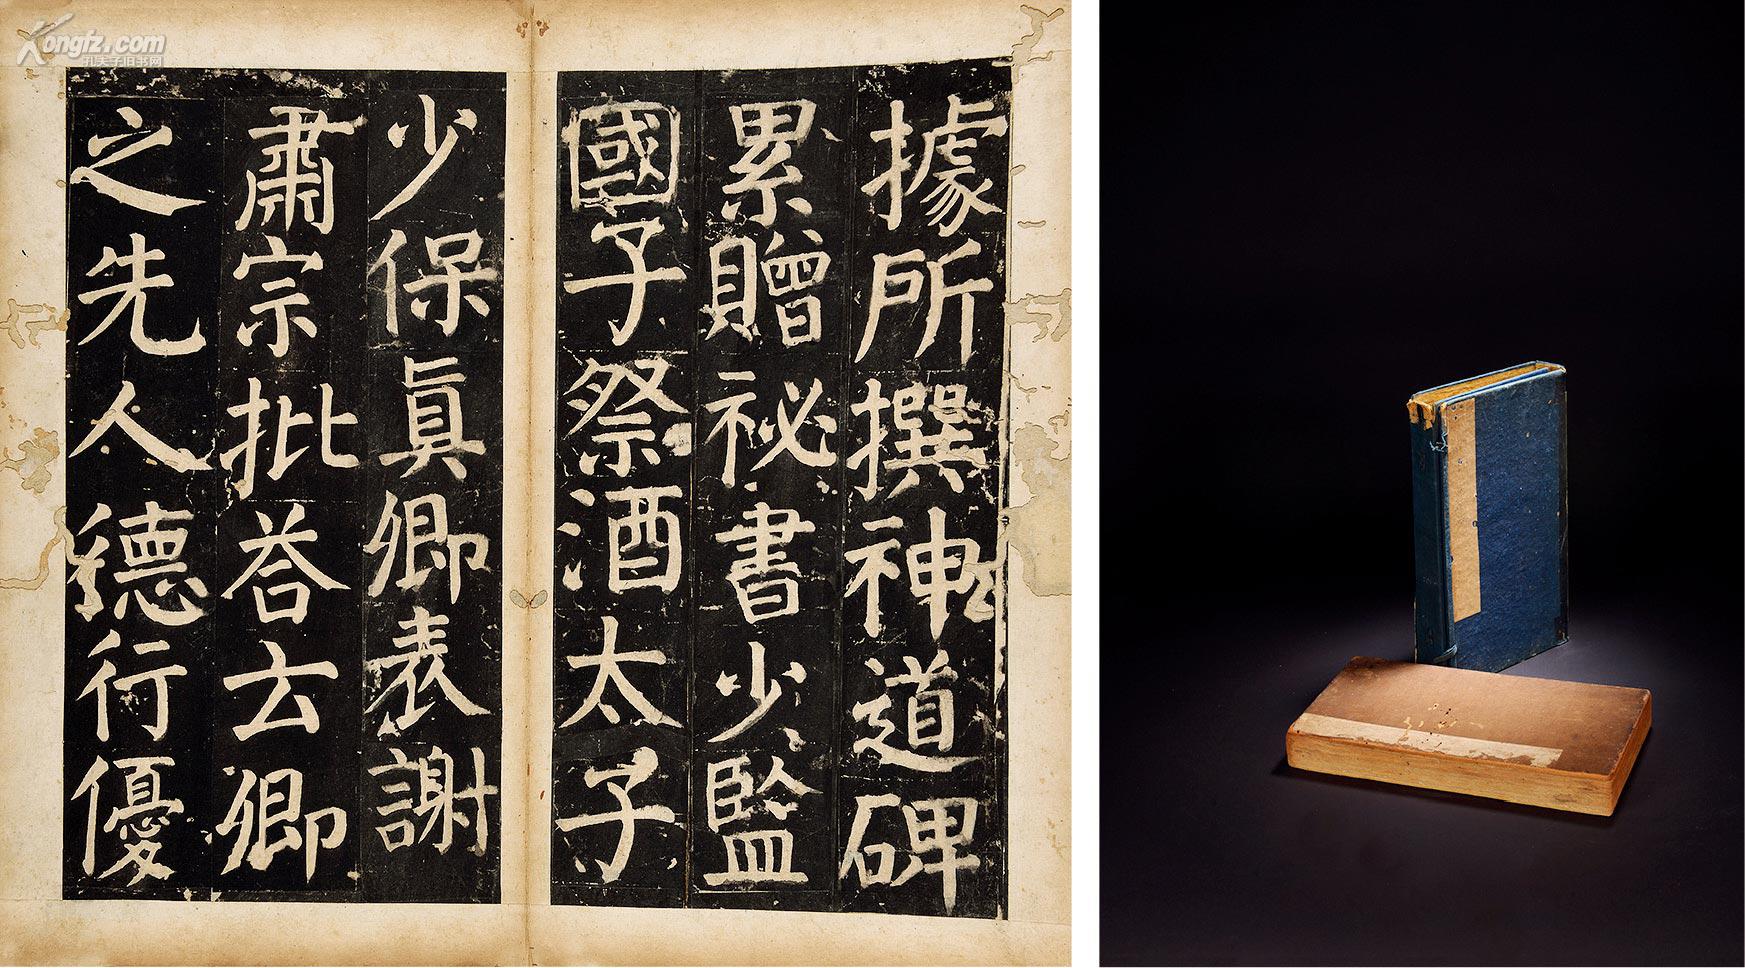 據所撰神道碑
累贈祕書少監
國子祭酒太子
少保真卿表謝
肅宗批荅云卿
之先人德行優
Kongfz.com
孔夫子旧书网